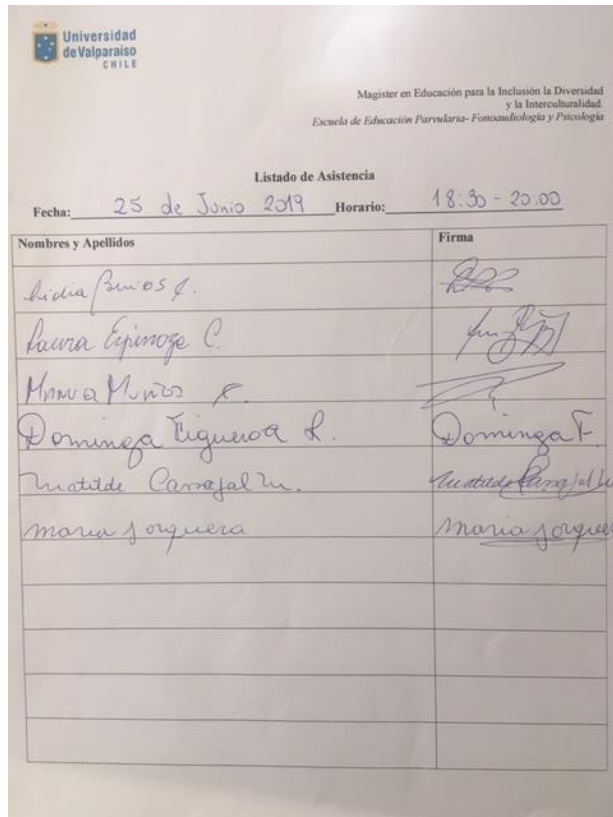 Universidad
de Valparaíso
CHILE
Magister en Educación para la Inclusión la Diversidad
y la Interculturalidad.
Escuela de Educación Parvularia- Fonoaudiología y Psicología
Listado de Asistencia
Fecha: 25 de Junio 2019 Horario: 18:30 - 20:00
Nombres y Apellidos Firma
Lidia
Laura Espinoza C.
Muñoz
Dominga Figueroa R. Dominga F.
Matilde Carvajal M. Matilde
maria jorquera maria jorquer